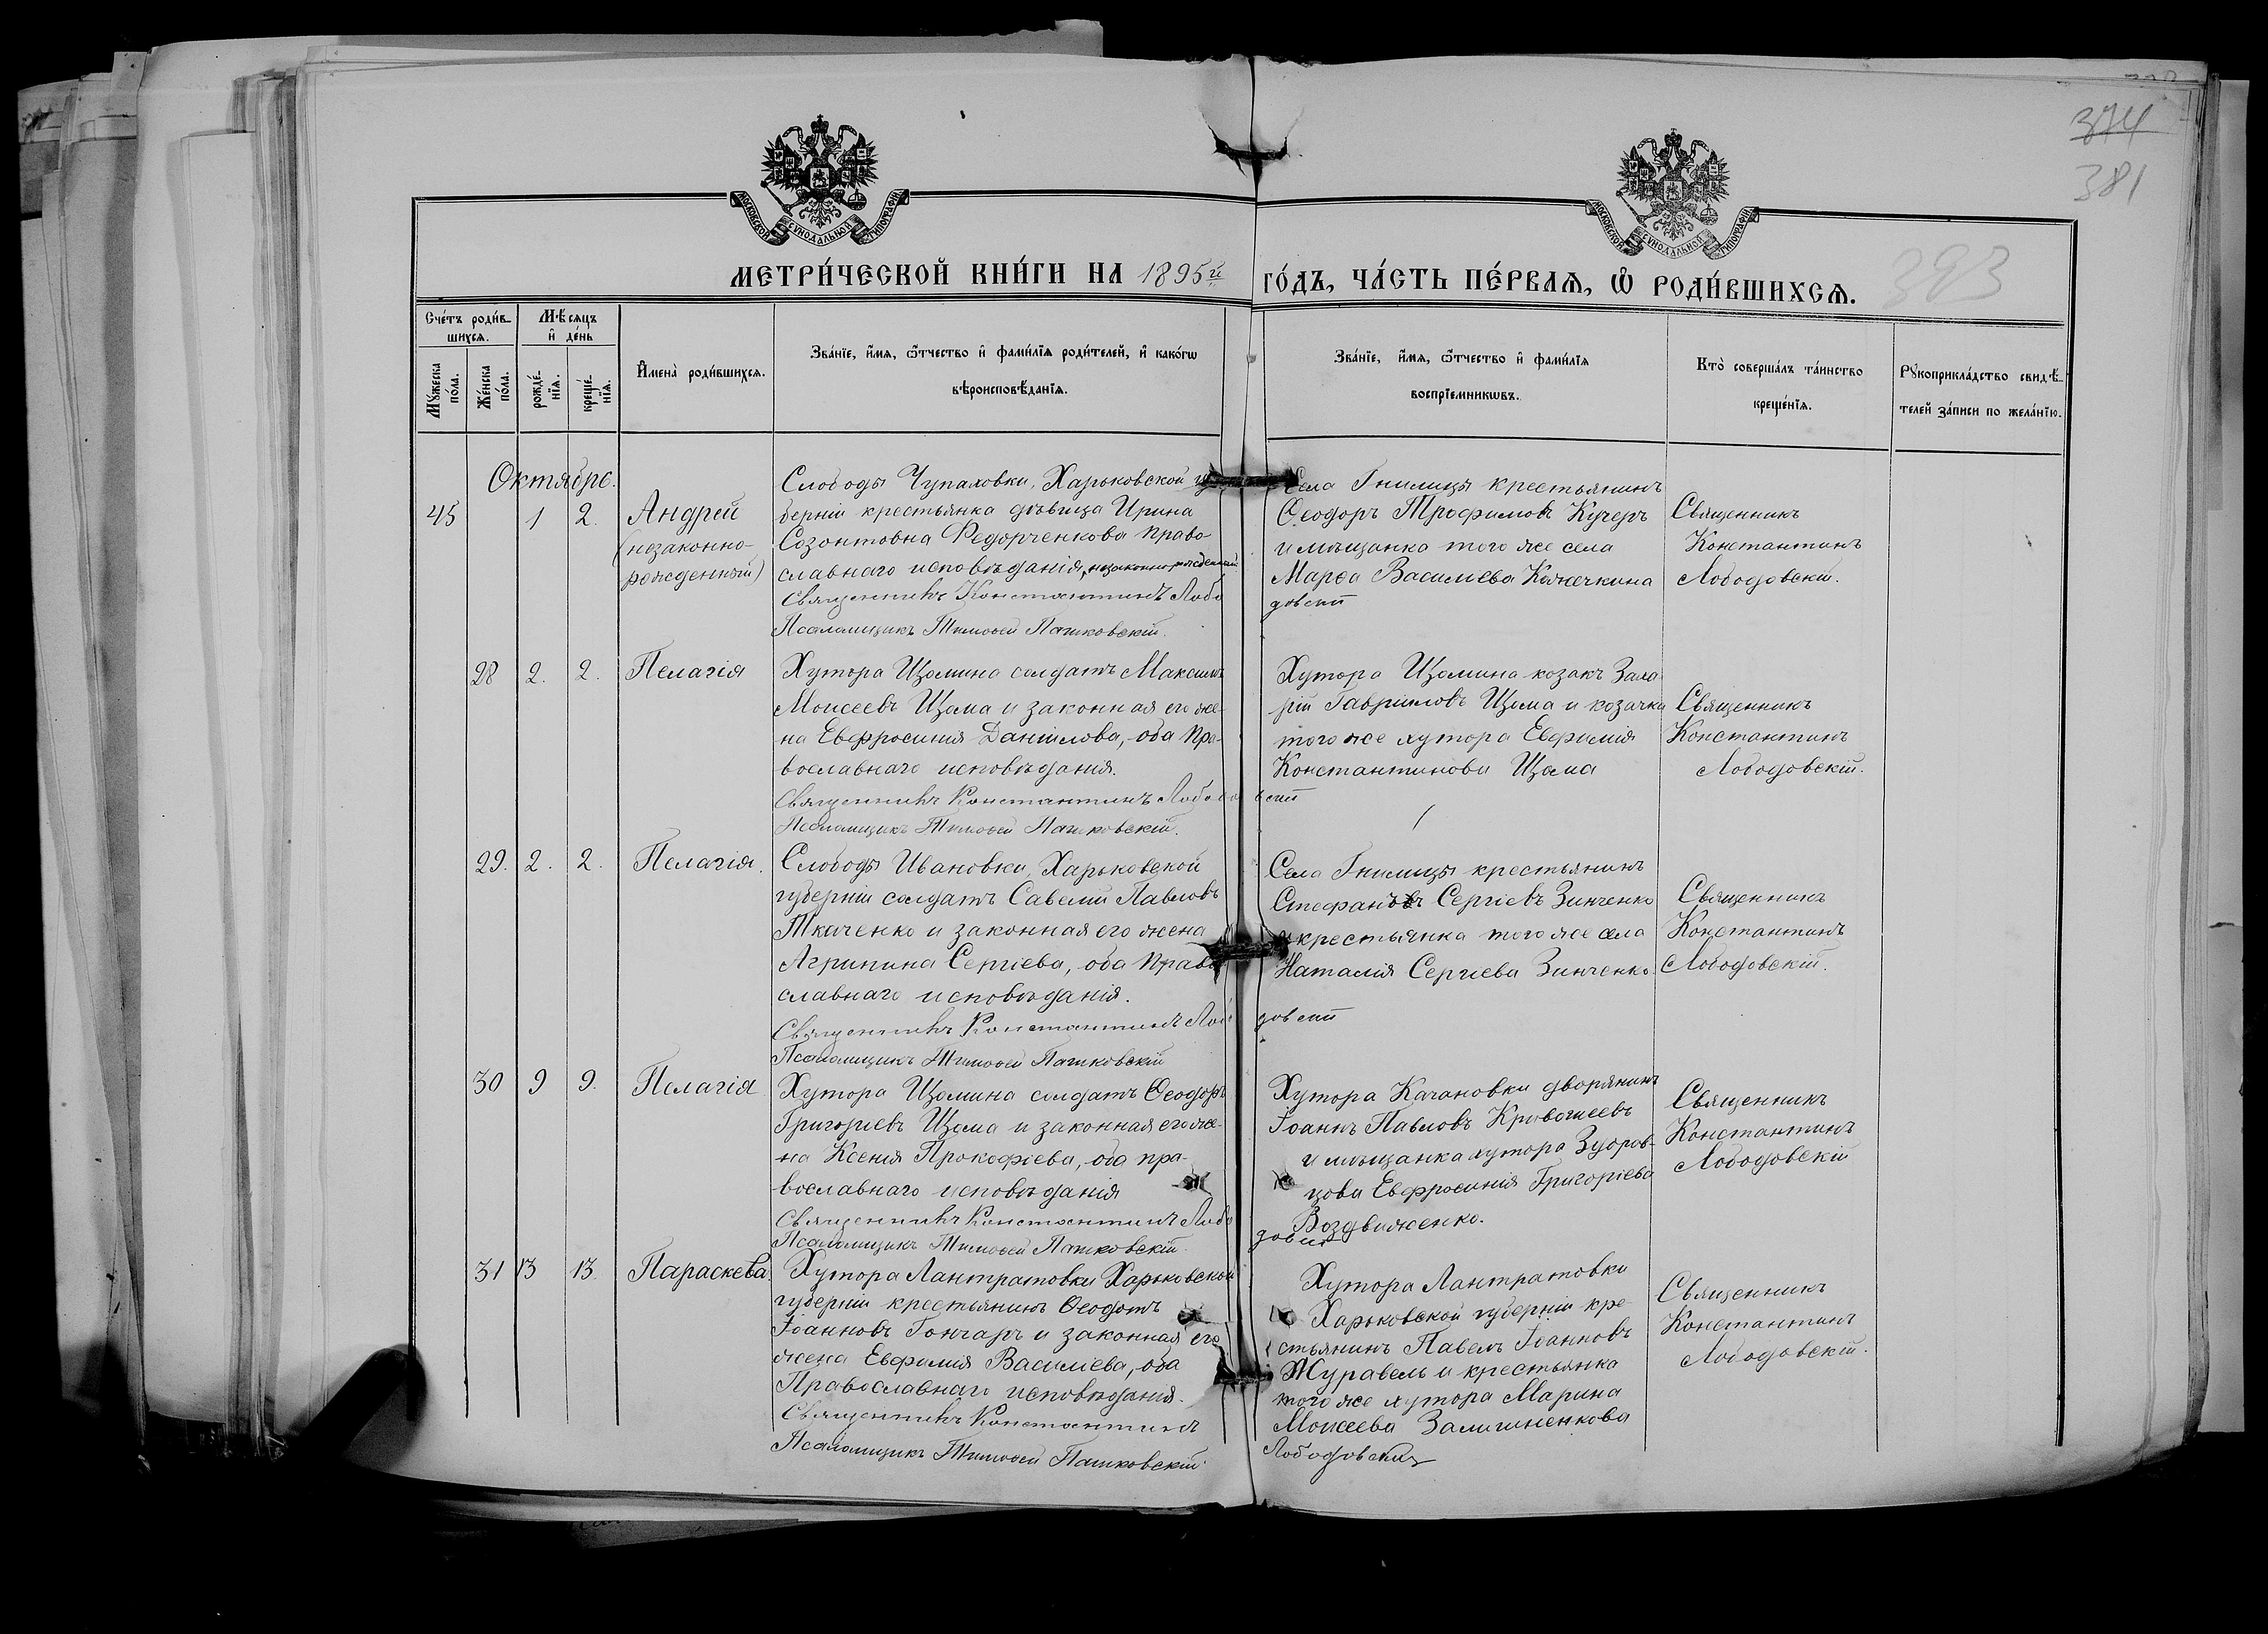 374
381
393
МОСКОВСКОЙ СѴНОДАЛЬНОЙ ТИПОГРАФІИ
МОСКОВСКОЙ СѴНОДАЛЬНОЙ ТИПОГРАФІИ
МЕТРИ́ЧЕСКОЙ КНИ́ГИ НА 1895й
ГО́ДЪ, ЧА́СТЬ ПЕ́РВАѦ, Ѡ҆ РОДИ́ВШИХСѦ.
Сче́тъ роди́в-
шихсѧ.
Мꙋ́жеска по́ла.
Же́нска по́ла.
Мѣ́сѧцъ
и҆ де́нь
рожде́-
нїѧ.
креще́-
нїѧ.
И҆мена̀ роди́вшихсѧ.
Зва́нїе, и҆́мѧ, ѻ҆́тчество и҆ фами́лїѧ роди́телей, и҆ како́гѡ
вѣроисповѣ́данїѧ.
Зва́нїе, и҆́мѧ, ѻ҆́тчество и҆ фами́лїѧ
воспрїе́мникѡвъ.
Кто̀ соверша́лъ та́инство
креще́нїѧ.
Рꙋкоприкла́дство свидѣ́-
телей за́писи по жела́нїю.
Октябрь.
45 1 2. Андрей
(незаконно-
рожденный)
Слободы Чупаховки, Харьковской гу
берніи крестьянка дѣвица Ирина
Созонтовна Федорченкова право-
славнаго исповѣданія, незаконнорожденный
Священникъ Константинъ Лобо
довскій
Псаломщикъ Тимоѳей Пашковскій.
Села Гнилицы крестьянинъ
Ѳеодоръ Трофимовъ Кучеръ
и мѣщанка того же села
Марѳа Василіева Камечкина
Священникъ
Константинъ
Лободовскій.
28 2. 2. Пелагія
Хутора Щомина солдатъ Максимъ
Моисеевъ Щома и законная его же-
на Евфросинія Даніилова, оба пра-
вославнаго исповѣданія.
Священникъ Константинъ Лободо
вскій
Псаломщикъ Тимоѳей Пашковскій.
Хутора Щомина козакъ
Гавріиловъ Щома и козачка
того же хутора Евфимія
Константинова Щома
Священникъ
Константинъ
Лободовскій.
29. 2. 2. Пелагія.
Слободы Ивановки, Харьковской
губерніи солдатъ Савелій Павловъ
Ткаченко и законная его жена
Агрипина Сергіева, оба право
славнаго исповѣданія.
Священникъ Константинъ Лобо
довскій
Псаломщикъ Тимоѳей Пашковскій
Села Гнилицы крестьянинъ
Стефанъ Сергіевъ Зинченко
и крестьянка того же села
Наталія Сергіева Зинченко.
Священникъ
Константинъ
Лободовскій.
30 9 9. Пелагія
Хутора Щомина солдатъ Ѳеодоръ
Григоріевъ Щома и законная его же-
на Ксенія Прокофіева, оба пра-
вославнаго исповѣданія
Священникъ Константинъ Лобо
довскій
Псаломщикъ Тимоѳей Пашковскій.
Хутора Качановки дворянинъ
Іоаннъ Павловъ Кривошеевъ
и мѣщанка хутора Здоров-
цова Евфросинія Григоріева
Воздвиженко.
Священникъ
Константинъ
Лободовскій
31 13 13. Параскева.
Хутора Лантратовки Харьковской
губерніи крестьянинъ Ѳеодотъ
Іоанновъ Гончаръ и законная его
жена Евфимія Василіева, оба
Православнаго исповѣданія.
Священникъ Константинъ
Лободовскій
Псаломщикъ Тимоѳей Пашковскій.
Хутора Лантратовки
Харьковской губерніи кре-
стьянинъ Павелъ Іоанновъ
Журавель и крестьянка
того же хутора Марина
Моисеева
Священникъ
Константинъ
Лободовскій.